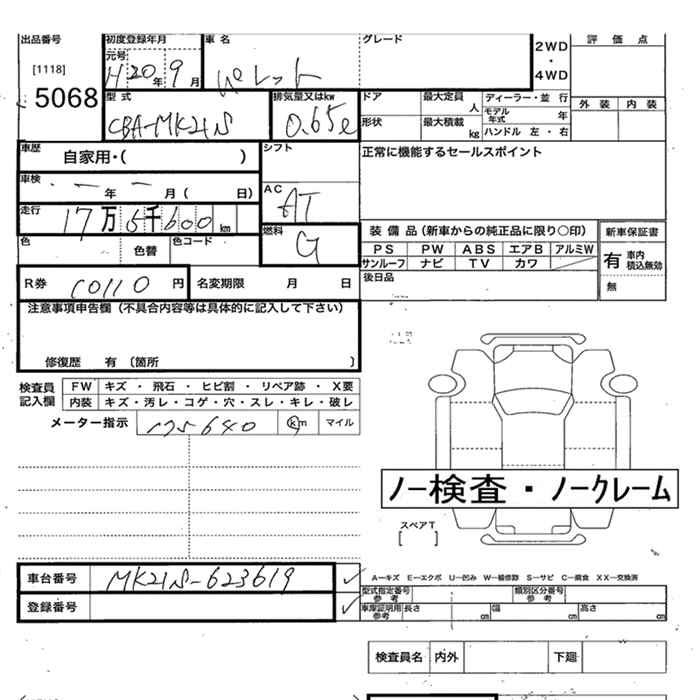 出品番号 初度登録年月 車名 グレード
[1118]
5068
元号
H20年9月 パレット
2WD
・
4WD
評価点
外装 内装
型式 排気量又はkw ドア 最大定員 人 ディーラー・並行
CBA-MK21S 0.65ℓ 形状 最大積載 kg モデル年式 年
ハンドル 左・右
車歴 自家用・( ) シフト 正常に機能するセールスポイント
車検 - 年 - 月( 日) AC
AT
走行 17万5千600km
燃料
G
装備品(新車からの純正品に限り○印) 新車保証書
色 色替 色コード
PS PW ABS エアB アルミW
サンルーフ ナビ TV カワ
有 車内積込無効
無
R券 10110円 名変期限 月 日 後日品
注意事項申告欄(不具合内容等は具体的に記入して下さい)
修復歴 有 〔箇所 〕
検査員記入欄 FW キズ・飛石・ヒビ割・リペア跡・X要
内装 キズ・汚レ・コゲ・穴・スレ・キレ・破レ
メーター指示 175640 km マイル
ノー検査・ノークレーム
スペアT
[ ]
車台番号 MK21S-623619
登録番号
A-キズ E-エクボ U-凹み W-補修跡 S-サビ C-腐食 XX-交換済
型式指定番号 参考 類別区分番号 参考
車庫証明用 参考 長さ cm 幅 cm 高さ cm
検査員名 内外 下廻